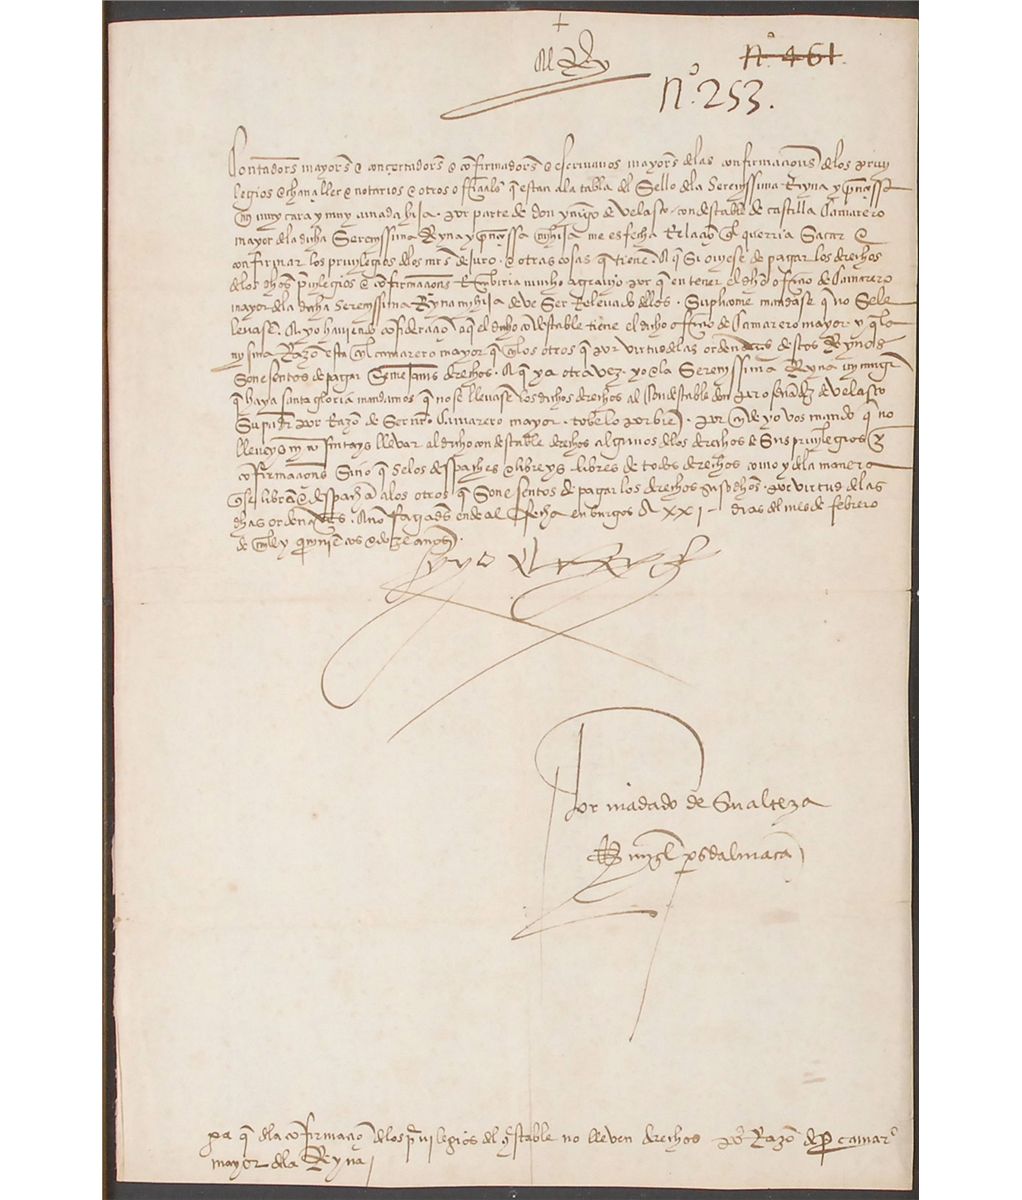 +
El Rey
nº 461.
nº 253.
Contadores mayores e concertadores e confirmadores e escrivanos mayores delas confirmaciones delos privi
legios e chançiller e notarios e otros oficiales que estan ala tabla del Sello dela Serenissima Reyna y prinçessa
mi muy cara y muy amada hija. por parte de don yñigo de velasco condestable de castilla Camarero
mayor dela dicha Serenissima Reyna y prinçessa mi hija me es fecha Relaçion que querria Sacar e
confirmar los privilegios delos mrs de juro. e otras cosas que tiene. E que Si oviese de pagar los derechos
delos dichos privilegios e confirmaciones Reçibiria mucho agravio por que en tener el dicho ofiçio de Camarero
mayor dela dicha Serenissima Reyna mi hija deve Ser Relevado dellos. Suplicome mandase que no Sele
levasen. E yo haviendo consideraçion a que el dicho condestable tiene el dicho offiçio de Camarero mayor y que la
misma Razon esta enel camarero mayor que enlos otros que por virtud delas ordenanças destos Reynos
Son esentos de pagar Semejantes derechos. E que ya otra vez yo e la Serenissima Reyna mi muger
que haya santa gloria mandamos que no se llevasen los dichos derechos al Condestable don pero fernandez de velasco
Su padre por Razon de Ser nuestro Camarero mayor. tovelo por bien. por ende yo vos mando que no
lleveys ni consintays llevar al dicho condestable derechos algunos delos derechos de Sus privilegios e
confirmaciones Sino que Selos despacheis e libreys libres de todos derechos como y dela manera
que se libran e despachan alos otros que Son esentos de pagar los derechos susodichos. por virtud delas
dichas ordenanças. E no fagades ende al fecha en burgos A XXI dias del mes de febrero
de mill y quinientos e doze años.
yo el Rey
Por mandado de Su alteza
miguel perez dalmaçan
para que dela confirmaçion delos previlegios del condestable no lleven derechos por Razon de Ser camarero
mayor dela Reyna